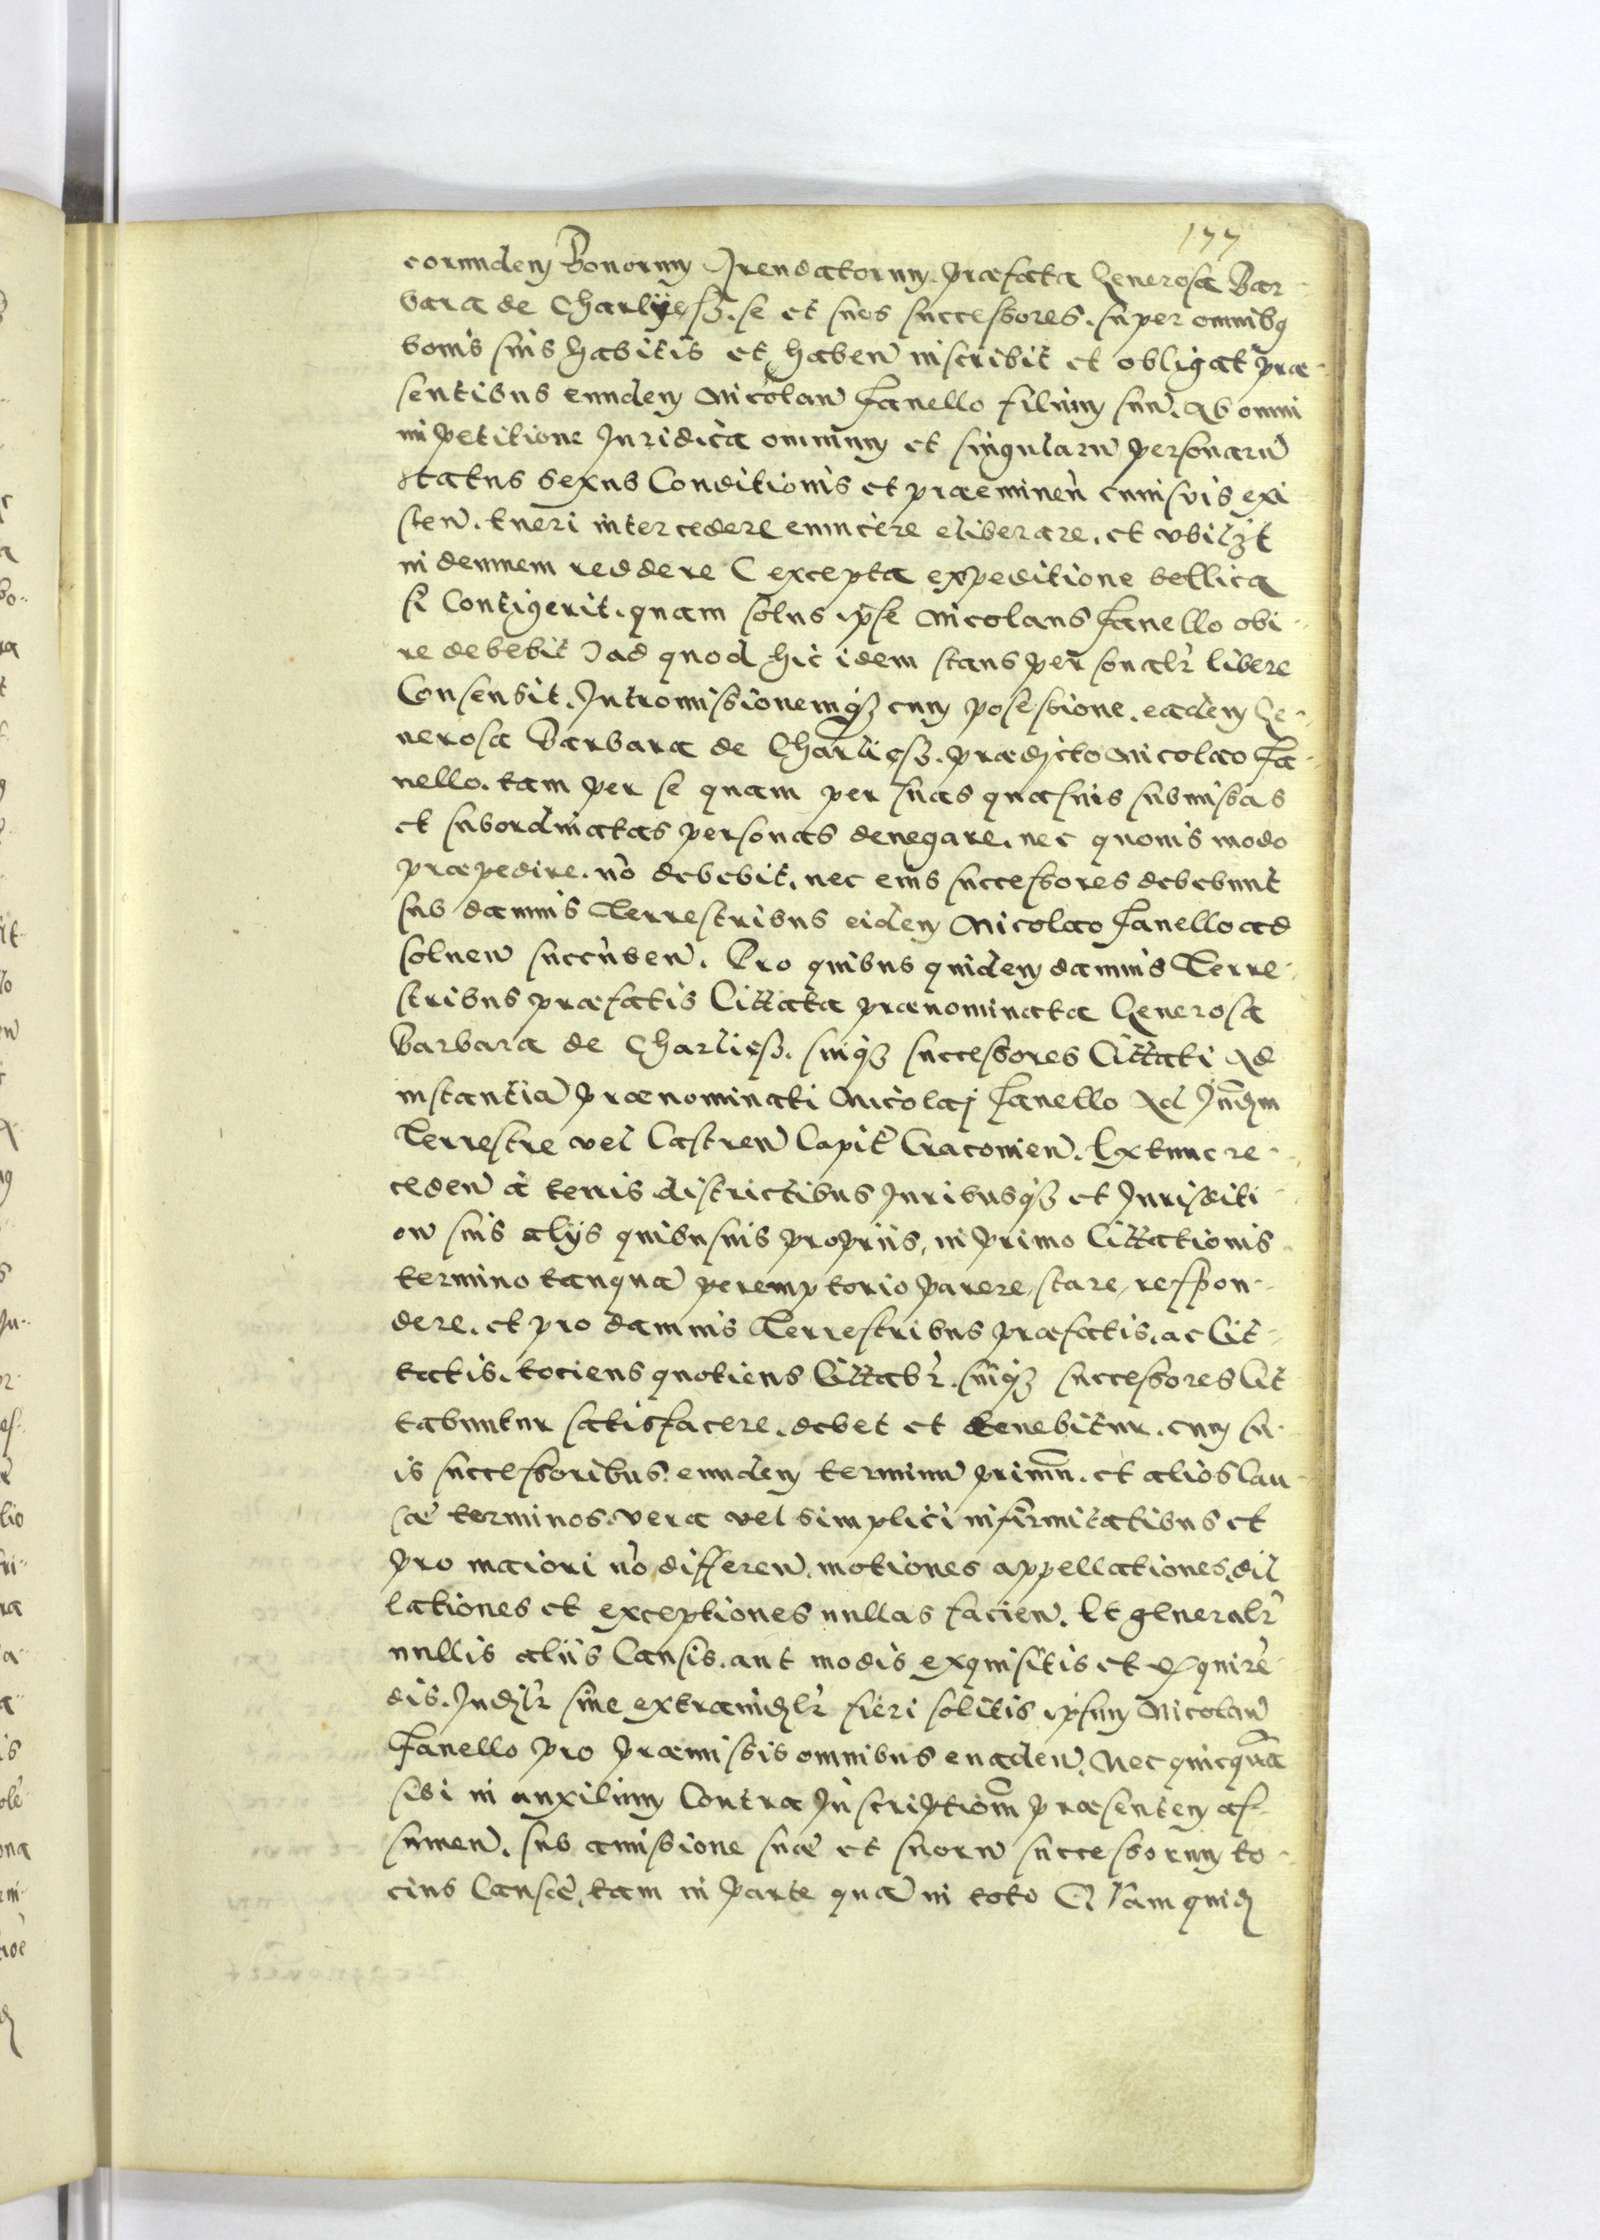 177
eorundem Bonorum Arendatorum. Præfata Generosa Bar-
bara de Charlyesz. se et suos successores. super omnibq
bonis suis habitis et haben̄ inscribit et obligat præ-
sentibus eundem Nicolaū Fanello filium suū. Ab omni
impetitione Juridica omnium et singularū personarū
Status Sexus Conditionis et præeminen̄ cuiusvis exi
sten̄. tueri intercedere evincere eliberare. et ubilȝt
indemnem reddere (excepta expeditione bellica
si Contigerit. quam solus ipse Nicolaus Fanello obi-
re debebit) ad quod hic idem stans personalr̄ libere
Consensit. Intromissionemqȝ cum posessione. eadem Ge-
nerosa Barbara de Charliesz. prædicto Nicolao Fa-
nello. tam per se quam per suas quasuis submissas
et subordinatas personas denegare. nec quouis modo
præpedire. nō debebit. nec eius successores debebunt
sub damnis Terrestribus eidem Nicolao Fanello ad
soluen̄ succūben̄. Pro quibus quidem damnis Terre-
stribus præfatis Cittata prænominata Generosa
Barbara de Charliesz. suiqȝ successores Cittati Ad
instantiā prænominati Nicolaj Fanello Ad Iudm
Terrestre vel Castren̄ Capit̄ Cracouien̄. Extunc re-
ceden̄ à terris districtibus Juribusqȝ et Jurisditi
on̄ suis alys quibusuis proprijs, in primo Cittationis
termino tanquā peremptorio parere, stare, respon-
dere. et pro damnis Terrestribus præfatis. ac Cit-
tatis. tociens quotiens Cittabr̄. suiqȝ successores Cit
tabuntur satisfacere. debet et tenebitur. cum su-
is successoribus. eundem terminū primū. et alios Cau-
sæ terminos. vera vel simplici infirmitatibus et
pro maiori nō differen̄. motiones appellationes. dil
lationes et exceptiones nullas facien̄. Et generalr̄
nullis aliis Causis. aut modis exquisitis et exquirē-
dis. Judlr̄ siue extraiudlr̄ fieri solitis ipsum Nicolaū
Fanello pro præmissis omnibus euaden̄. Nec quicquā
sibi in auxilium Contra Inscriptiōm præsentem as-
sumen̄. sub amissione suæ et suorū successorum to-
cius Causæ, tam in parte quā in toto